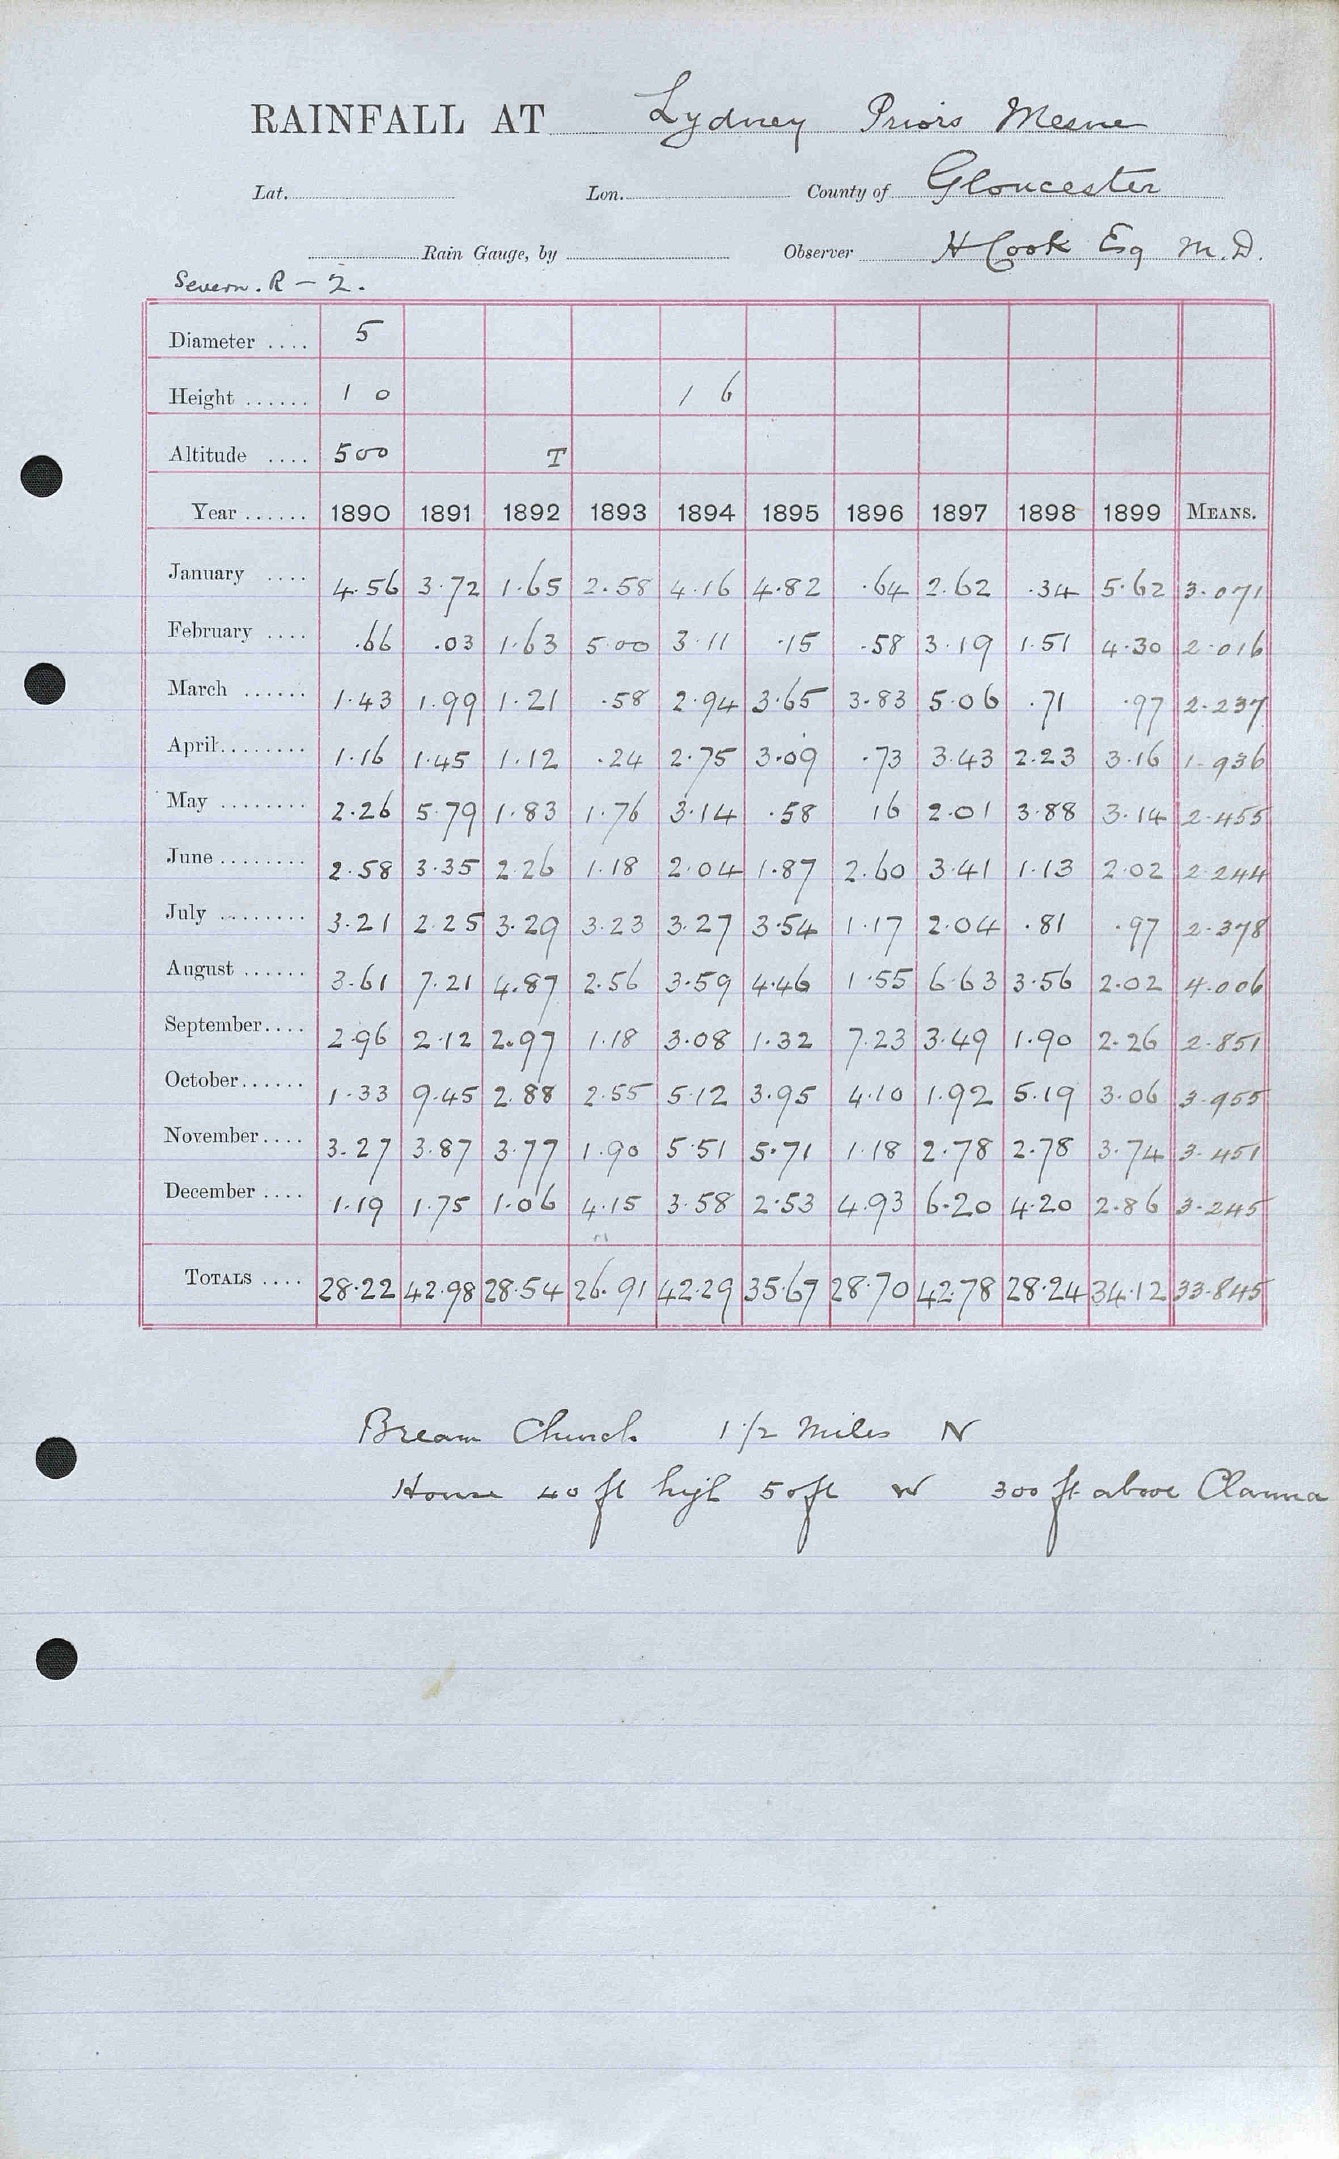 RAINFALL AT Lydney Priors Mesne
Lat. Lon. County of Gloucester
Rain Gauge, by Observer H Cook Esq M.D.
Severn. R - 2.
Diameter .... 5
Height ...... 1 0 1 6
Altitude .... 500 T
Year ...... 1890 1891 1892 1893 1894 1895 1896 1897 1898 1899 MEANS.
January .... 4.56 3.72 1.65 2.58 4.16 4.82 .64 2.62 .34 5.62 3.071
February .... .66 .03 1.63 5.00 3.11 .15 .58 3.19 1.51 4.30 2.016
March ...... 1.43 1.99 1.21 .58 2.94 3.65 3.83 5.06 .71 .97 2.237
April........ 1.16 1.45 1.12 .24 2.75 3.09 .73 3.43 2.23 3.16 1.936
May ........ 2.26 5.79 1.83 1.76 3.14 .58 16 2.01 3.88 3.14 2.455
June ........ 2.58 3.35 2.26 1.18 2.04 1.87 2.60 3.41 1.13 2.02 2.244
July ........ 3.21 2.25 3.29 3.23 3.27 3.54 1.17 2.04 .81 .97 2.378
August ...... 3.61 7.21 4.87 2.56 3.59 4.46 1.55 6.63 3.56 2.02 4.006
September.... 2.96 2.12 2.97 1.18 3.08 1.32 7.23 3.49 1.90 2.26 2.851
October...... 1.33 9.45 2.88 2.55 5.12 3.95 4.10 1.92 5.19 3.06 3.955
November.... 3.27 3.87 3.77 1.90 5.51 5.71 1.18 2.78 2.78 3.74 3.451
December .... 1.19 1.75 1.06 4.15 3.58 2.53 4.93 6.20 4.20 2.86 3.245
TOTALS .... 28.22 42.98 28.54 26.91 42.29 35.67 28.70 42.78 28.24 34.12 33.845
Bream Church 1 1/2 miles N
House 40 ft high 50 ft W 300 ft above Clanna